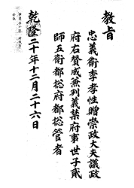 教旨
忠義衛李孝性贈崇政大夫議政
府右贊成兼判義禁府事世子貳
師五衛都摠府都摠管者
乾隆二十年十二月二十六日